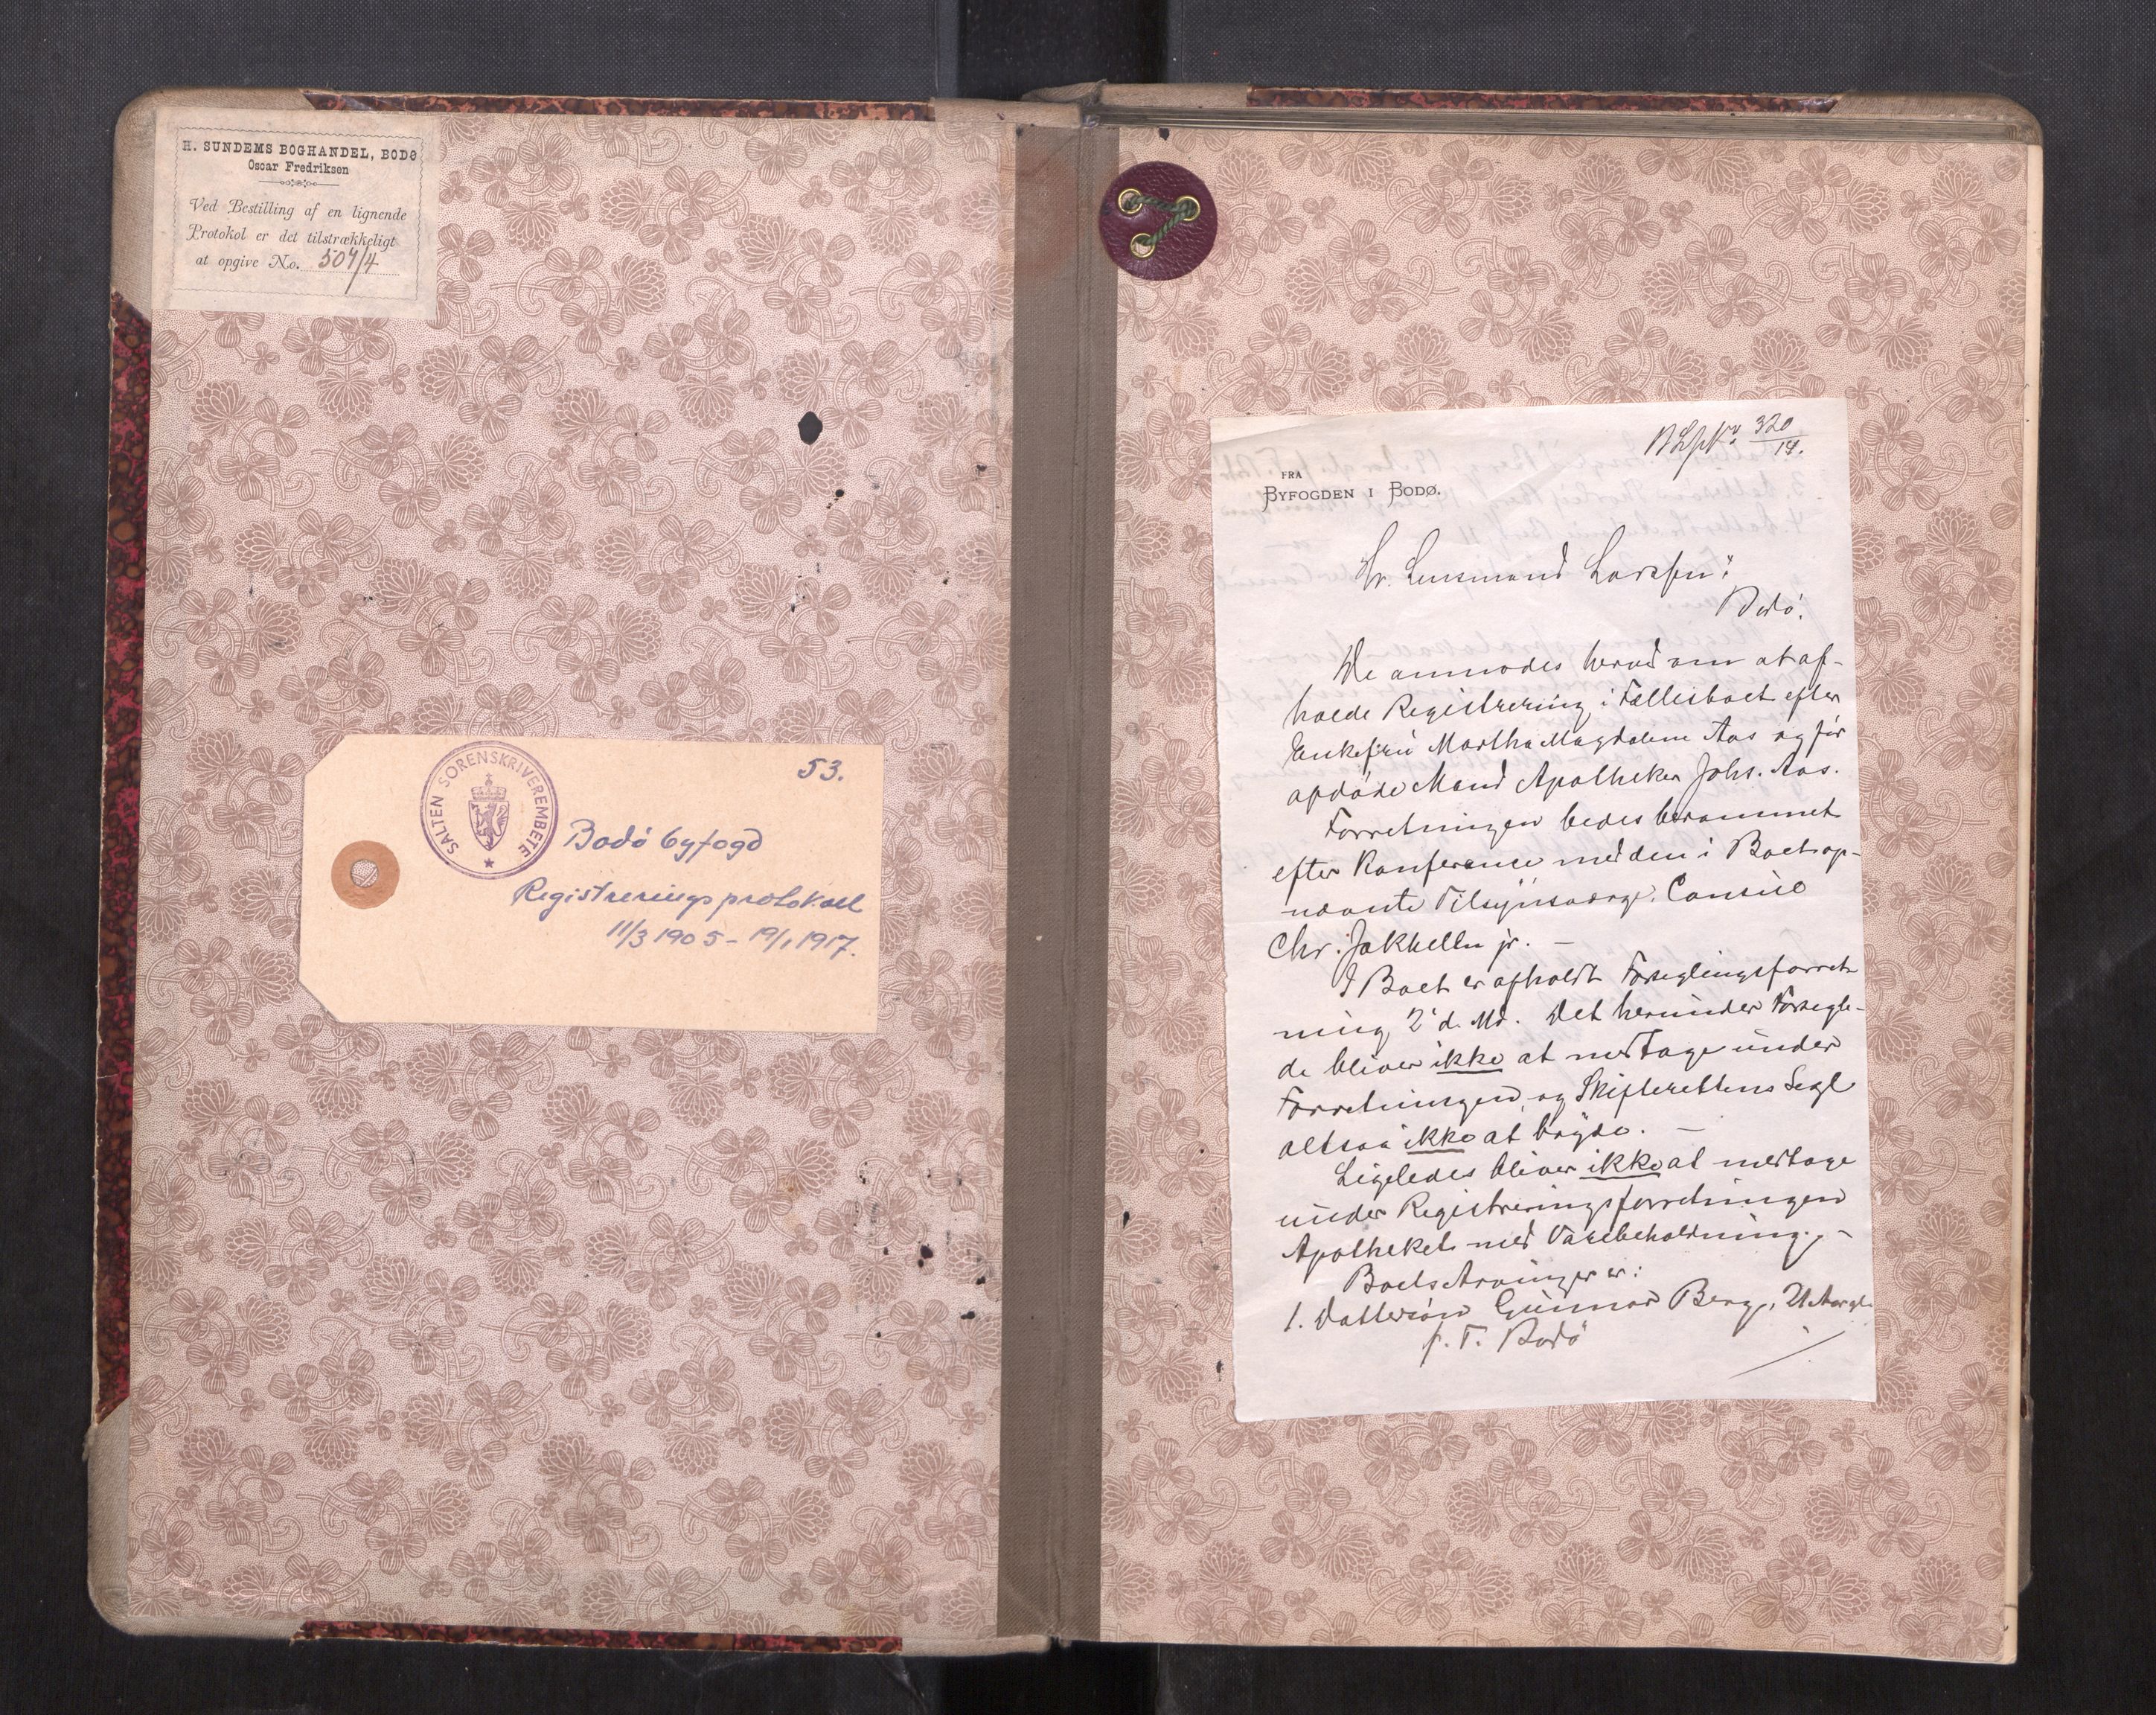 H. SUNDEMS BOGHANDEL, BODØ
Oscar Fredriksen
Ved Bestilling af en lignende
Protokol er det tilstrækkeligt
at opgive No. 504/4
53.
SALTEN SORENSKRIVEREMBETE
Bodó byfogd
Registreringsprotokoll
11/3 1905 - 19/1 1917.
320/14.
FRA
BYFOGDEN I BODØ.
Hr. Lensmand Larssen!
Bodó.
De anmodes herved om at af-
holde Registrering i Fællesboet efter
Enkefru Martha Magdalene Aas og før
afdøde Mand Apotheker Johs. Aas.
Forretningen bedes berammet
efter Konference med den i Boet op-
nævnte Tilsynsværge, Consul
Chr. Jakhelln jr. –
I Boet er afholdt Forseglingsforret-
ning 2' d. Md. Det herunder Forsegle-
de bliver ikke at medtage under
Forretningen, og Skifterettens Segl
altsaa ikke at bryde. –
Ligeledes bliver ikke at medtage
under Registreringsforretningen
Apotheket med Varebeholdning. –
Boets Arvinger er:
1. Dattersøn Gunnar Berg, 21 Aar gl.
p. T. Bodö